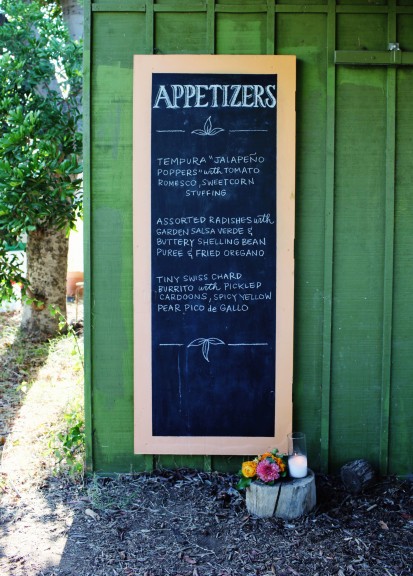 APPETIZERS
TEMPURA "JALAPEÑO
POPPERS" with TOMATO
ROMESCO, SWEETCORN
STUFFING
ASSORTED RADISHES with
GARDEN SALSA VERDE &
BUTTERY SHELLING BEAN
PUREE & FRIED OREGANO
TINY SWISS CHARD
BURRITO with PICKLED
CARDOONS, SPICY YELLOW
PEAR PICO de GALLO